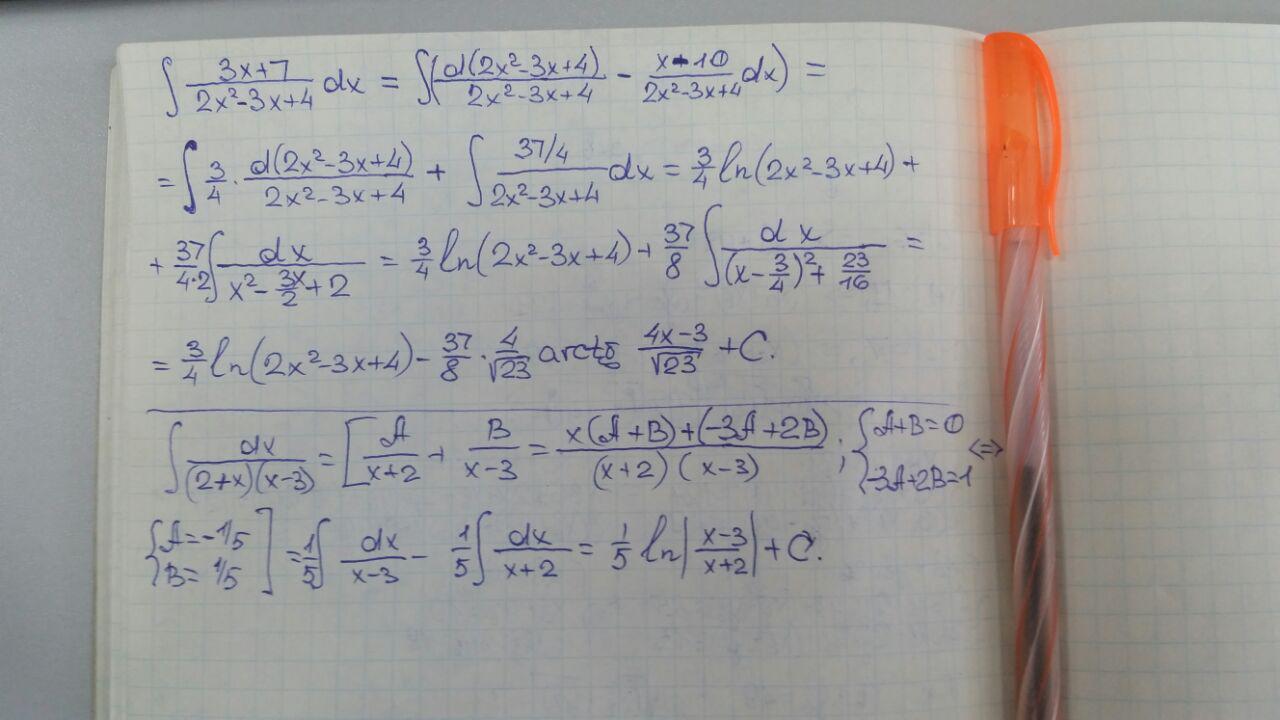 ∫ (3x+7)/(2x²-3x+4) dx = ∫( d(2x²-3x+4)/(2x²-3x+4) - (x-10)/(2x²-3x+4) dx) =
= ∫ 3/4 · d(2x²-3x+4)/(2x²-3x+4) + ∫ (37/4)/(2x²-3x+4) dx = 3/4 ln(2x²-3x+4) +
+ 37/(4·2) ∫ dx/(x² - 3x/2 + 2) = 3/4 ln(2x²-3x+4) + 37/8 ∫ dx/((x-3/4)² + 23/16) =
= 3/4 ln(2x²-3x+4) - 37/8 · 4/√23 arctg (4x-3)/√23 + C.
∫ dx/((2+x)(x-3)) = [ A/(x+2) + B/(x-3) = (x(A+B)+(-3A+2B))/((x+2)(x-3)) ; { A+B=0 -3A+2B=1 ⇔
{ A=-1/5 B=1/5 ] = 1/5 ∫ dx/(x-3) - 1/5 ∫ dx/(x+2) = 1/5 ln| (x-3)/(x+2) | + C.